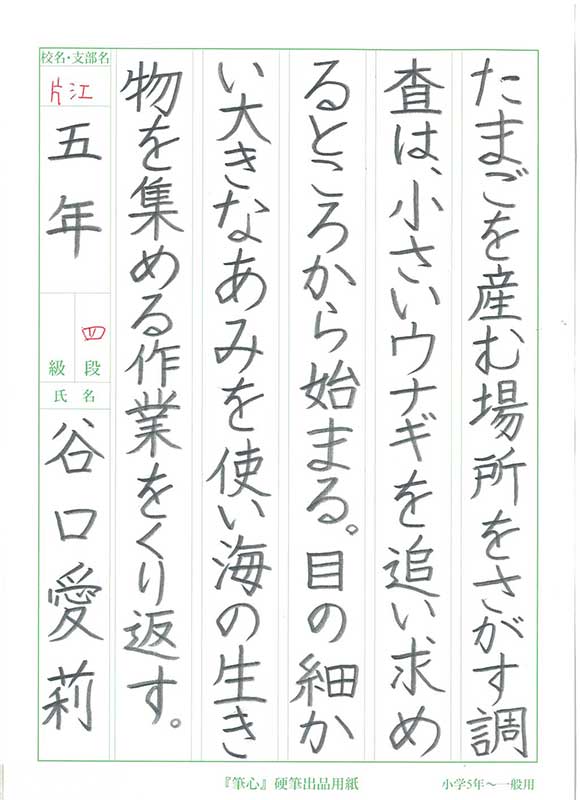 たまごを産む場所をさがす調
査は、小さいウナギを追い、求め
るところから始まる。目の細か
い大きなあみを使い海の生き
物を集める作業をくり返す。
校名・支部名
片江
五年
四
級 段
氏名
谷口愛莉
『筆心』硬筆出品用紙
小学5年～一般用